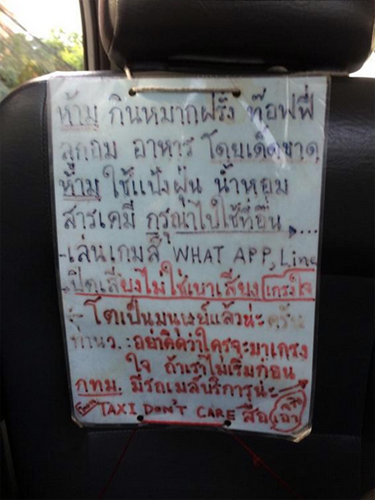 ห้าม กินหมากฝรั่ง ท๊อฟฟี่
ลูกอม อาหาร โดยเด็ดขาด
ห้าม ใช้แป้งฝุ่น น้ำหอม
สารเคมี กรุณาไปใช้ที่อื่น,...
-เล่นเกมส์ WHAT APP, Line
ปิดเสียงไม่ใช่เบาเสียง เกรงใจ
โตเป็นมนุษย์แล้วน่ะครับ
:อย่าคิดว่าใครจะมาเกรง
ใจ ถ้าเราไม่เริ่มก่อน
กทม. มีรถเมล์บริการน่ะ
TAXI DON'T CARE สื่อ